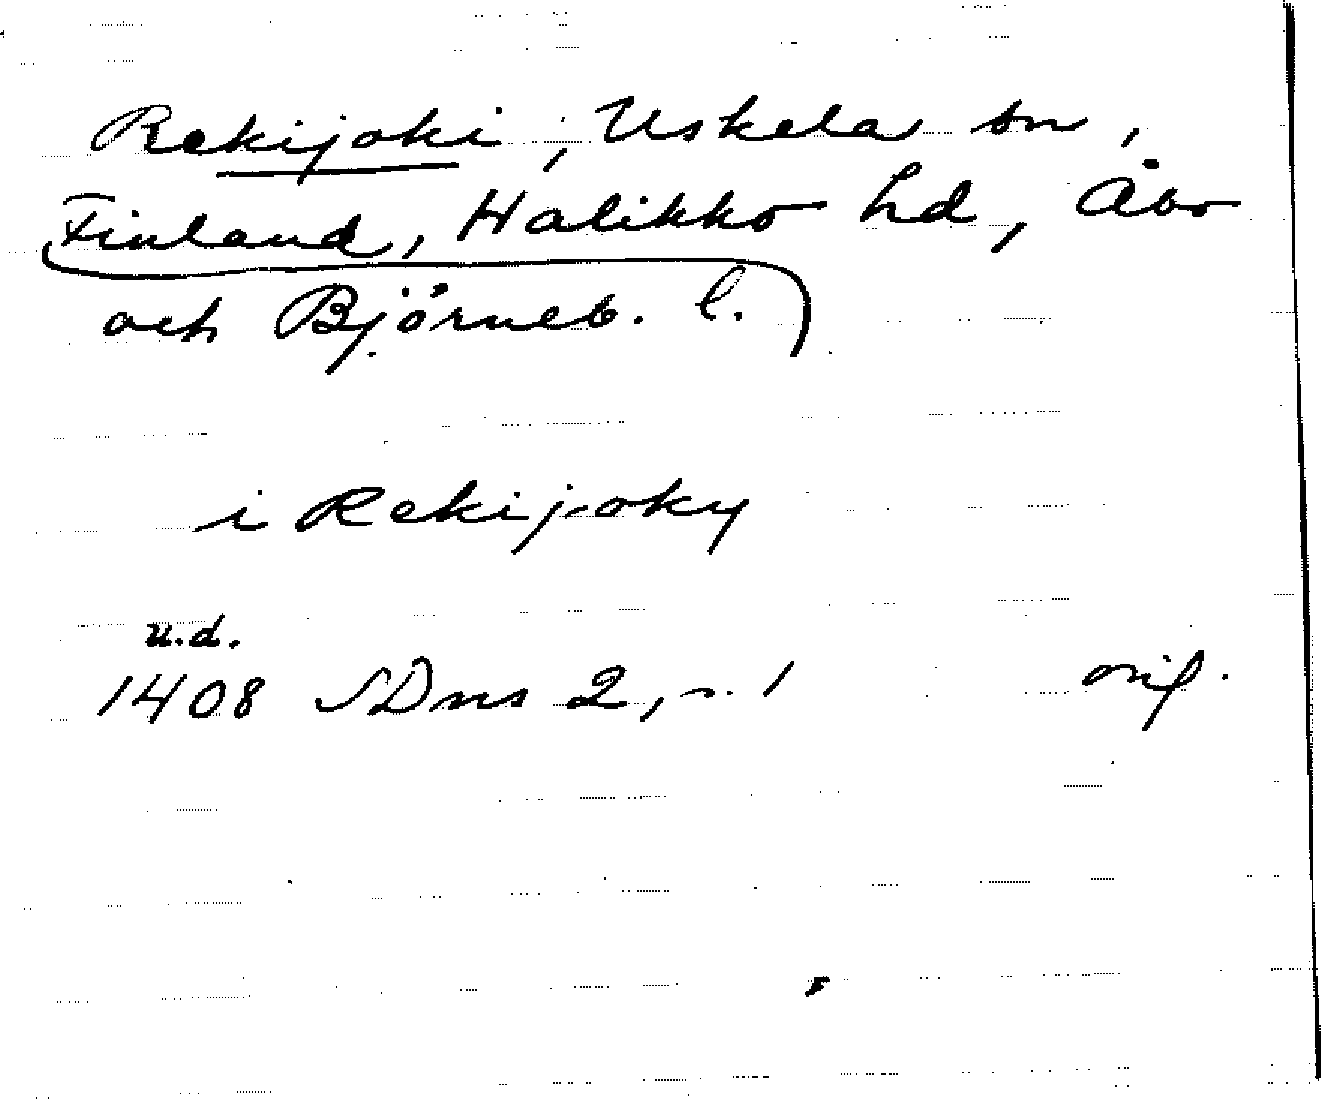 Rekijoki, Uskela sn,
Finland, Halikko hd, Åbo
och Björneb. l.
i Rekijoky
u.d.
1408 SDns 2, s. 1 orig.